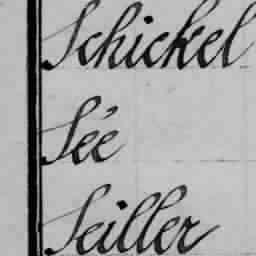 Schickel
Sée
Seiller